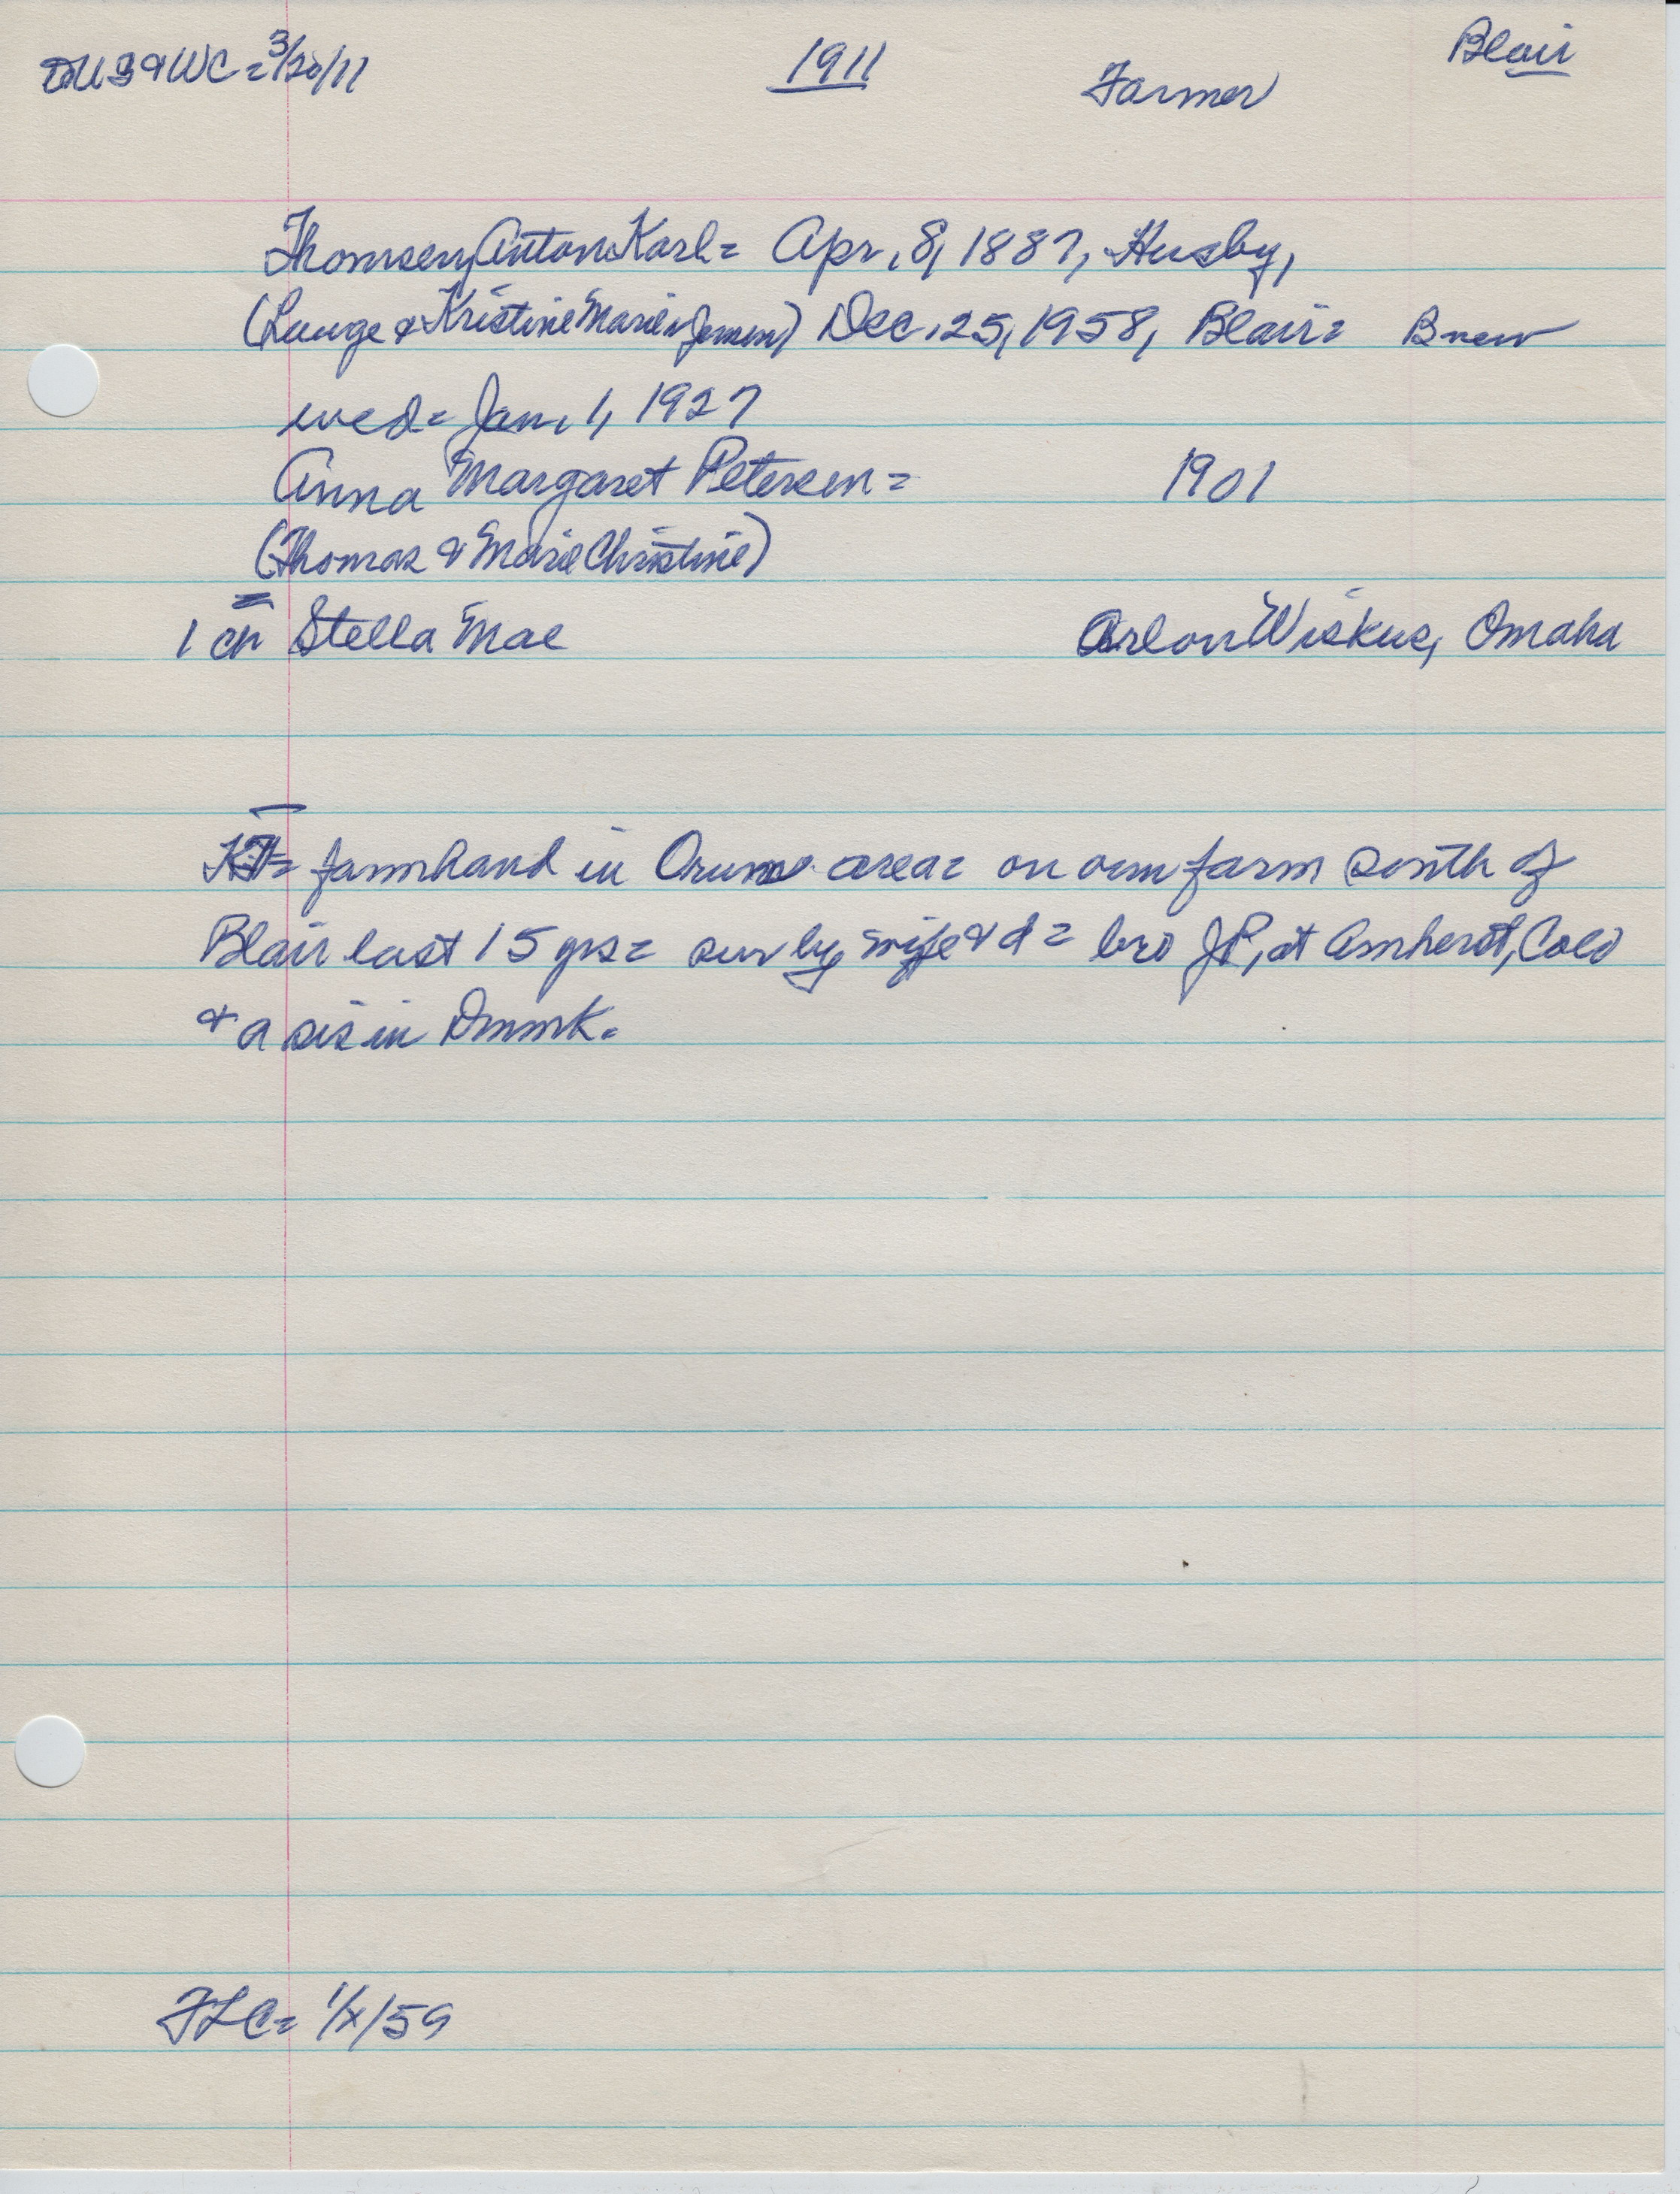 DUS&WC = 3/20/11 1911 Farmer Blair
Thomsen, Anton Karl = Apr. 8, 1887, Husby,
(Lauge & Kristine Marie Jensen) Dec. 25, 1958, Blair = B new
wed = Jan. 1, 1927
Anna Margaret Petersen = 1901
(Thomas & Marie Christine)
1 ch Stella Mae Arlon Wiskus, Omaha
farmhand in Orum area = on own farm south of
Blair last 15 yrs = sur by wife & d = bro JP, at Amherst, Colo
& a sis in Dnmk.
FLC = 1/x/59